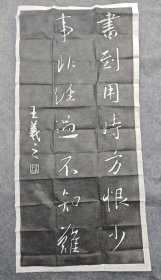 書到用時方恨少
事非經過不知難
王羲之